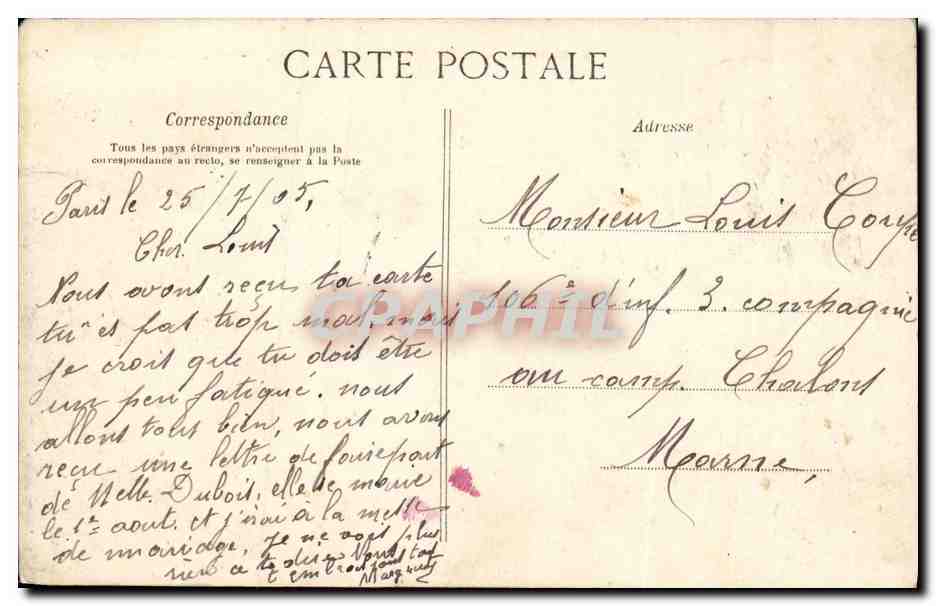 CARTE POSTALE
Correspondance
Tous les pays étrangers n'acceptent pas la
correspondance au recto, se renseigner à la Poste
Paris le 25/7/05,
Cher Louis
Nous avons reçu ta carte
tu es pas trop mal, mais
je croit que tu doit être
un peu fatigué. nous
allons tous bien, nous avons
reçu une lettre de faire part
de Melle Dubois, elle se marie
le 1er aout. et j'irai a la messe
de mariage, je ne vois plus
rien a te dire Nous
t'embrassons tous
Adresse
Monsieur Louis Coupé
106e d'inf. 3. compagnie
au camp. Chalons
Marne,
CPAPHIL